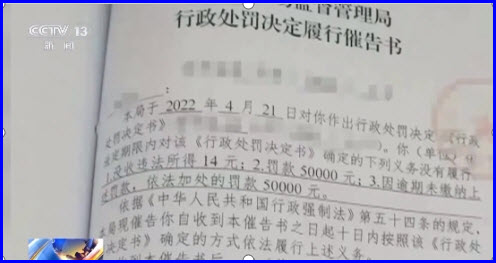 CCTV 13
新闻
监督管理局
行政处罚决定履行催告书
本局于 2022 年 4 月 21 日对你作出行政处罚决定《行政
处罚决定书》
你(单位)
法定期限内对该《行政处罚决定书》确定的下列义务没有履行
1.没收违法所得 14 元；2.罚款 50000 元；3.因逾期未缴纳上
述罚款，依法加处的罚款 50000 元。
依据《中华人民共和国行政强制法》第五十四条的规定，
本局现催告你自收到本催告书之日起十日内按照该《行政处
罚决定书》确定的方式依法履行上述义务。